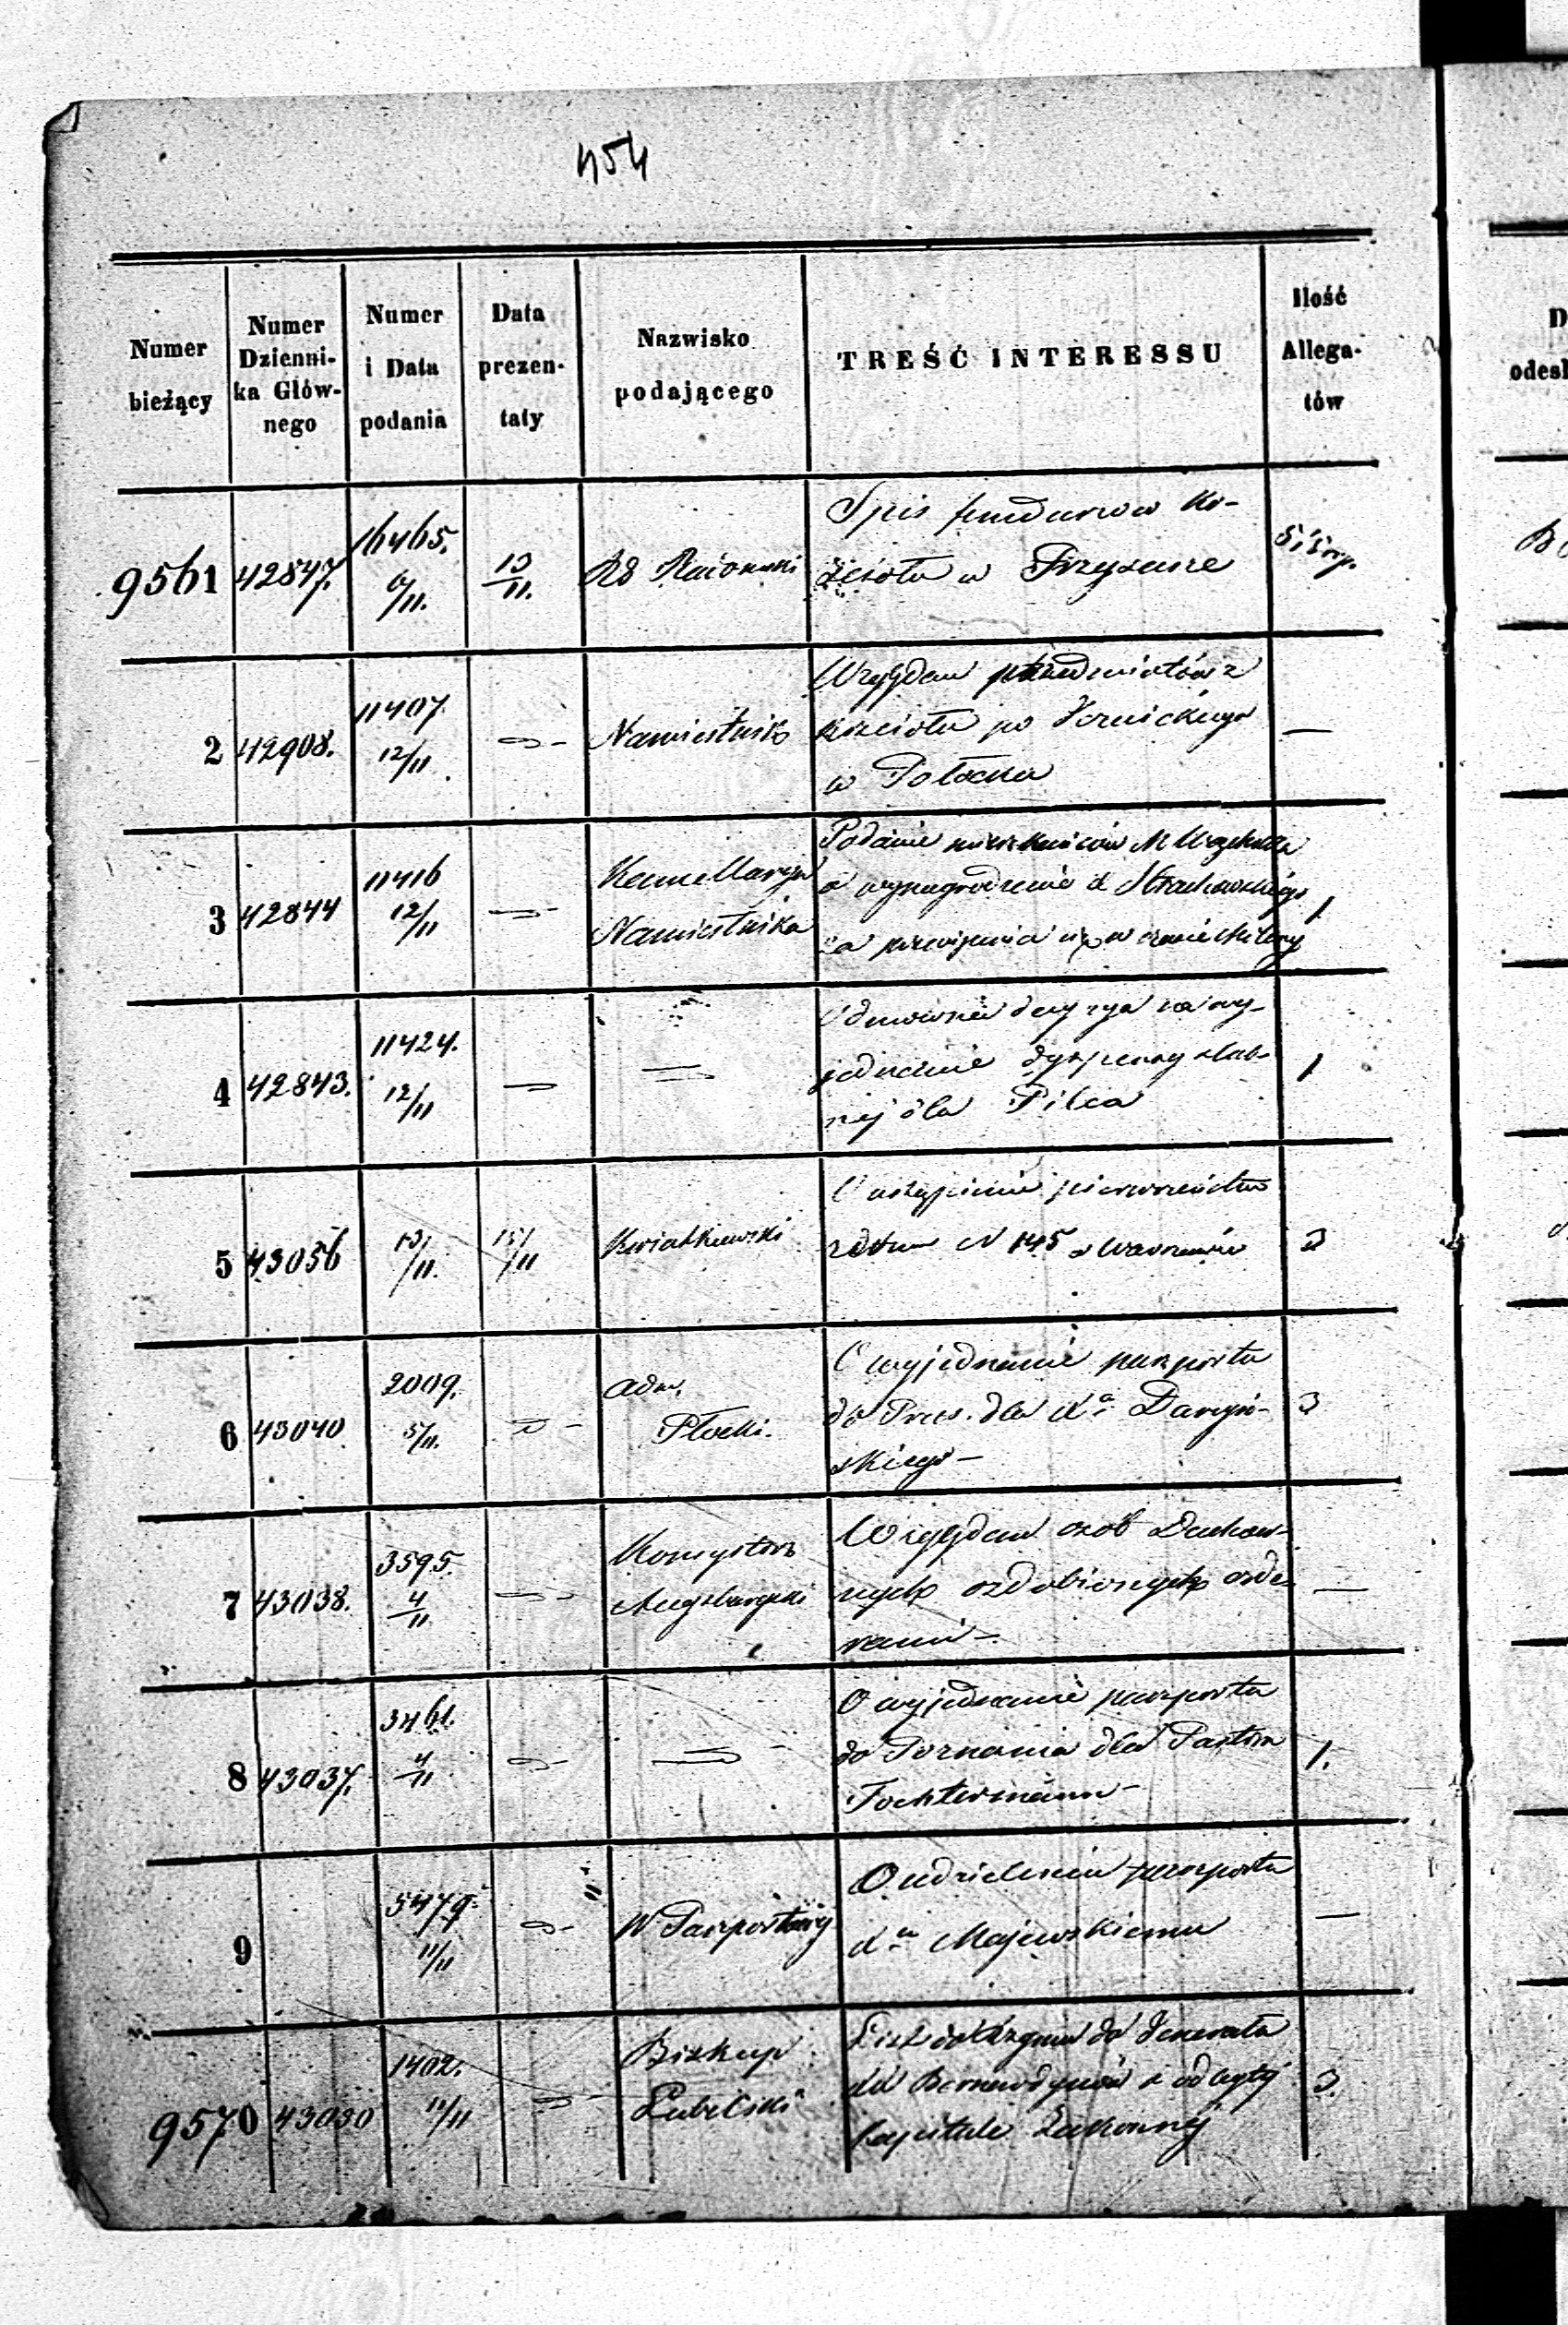 454
Numer bieżący
Numer Dzienni-ka Głów-nego
Numer i Data podania
Data prezen-taty
Nazwisko podającego
TREŚĆ INTERESSU
Ilość Allega-tów
9561 42847. 16465. 6/11. 13/11. RG
Spis funduszow Ko-
ścioła w
2 42908. 11407. 12/11 Namiestnik
Względem przedmiotów z
kościoła po
w Potoczku
3 42844 11416 12/11 Kancellarya
Namiestnika
Podanie
o wynagrodzenie X Strachowskiego
za
1
4 42843. 11424. 12/11
Odmowna decyzya na wy-
jednanie dyspensy ślub-
nej dla Pilca
1
5 43056 13/11. 15/11 Kwiatkowski
O ustąpienie pierwszeństwa
z domu N 145 w Warszawie
3
6 43040 2009. 5/11. Adm.
Płocki.
O wyjednanie paszportu
do Prus. dla Xa
skiego—
3
7 43038. 3595. 4/11 Konsystorz
Augsburgski
Względem osób Duchow-
nych ozdobionych orde-
rami—
8 43037. 3461. 4/11
O wyjednanie paszportu
do Poznania dla Pastora
Tochtermann—
1.
9 5479. 11/11 W Paszportowy
O udzieleniu paszportu
Xu Majewskiemu
9570 43030 1402. 11/11 Biskup
Lubelski
List do Rzymu do Jenerała
XX Bernardynów o odbytej
kapitule Zakonnej
3.
D
odesł